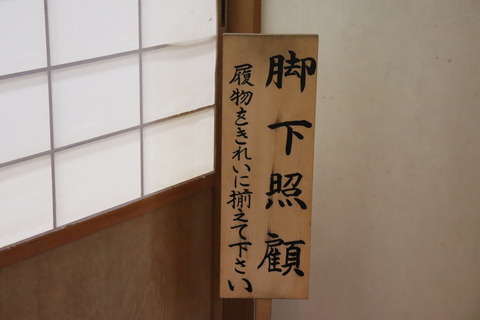 脚下照顧
履物をきれいに揃えて下さい